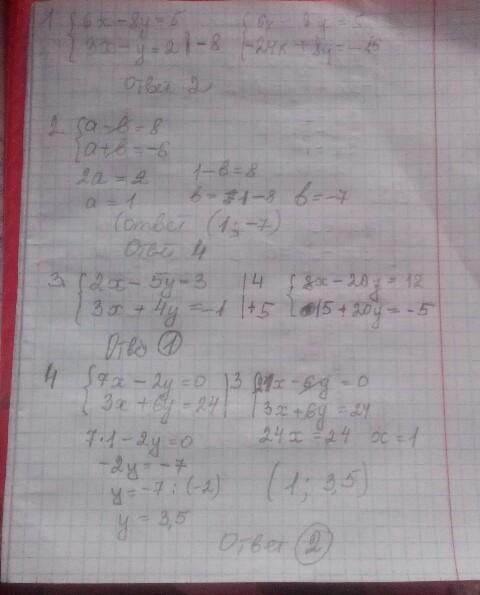 1 { 6x - 8y = 5
3x - y = 2 | -8
{ 6x - 8y = 5
-24x + 8y = -16
Ответ 2
2 { a - b = 8
a + b = -6
2a = 2
a = 1
1 - b = 8
b = 1 - 8 b = -7
(ответ (1; -7)
Ответ 4
3. { 2x - 5y = 3 | 4
3x + 4y = -1 | +5
{ 8x - 20y = 12
15 + 20y = -5
Ответ 1
4 { 7x - 2y = 0 | 3
3x + 6y = 24
{ 21x - 6y = 0
3x + 6y = 24
7·1 - 2y = 0
24x = 24 x = 1
-2y = -7
y = -7 : (-2)
(1; 3,5)
y = 3,5
Ответ 2